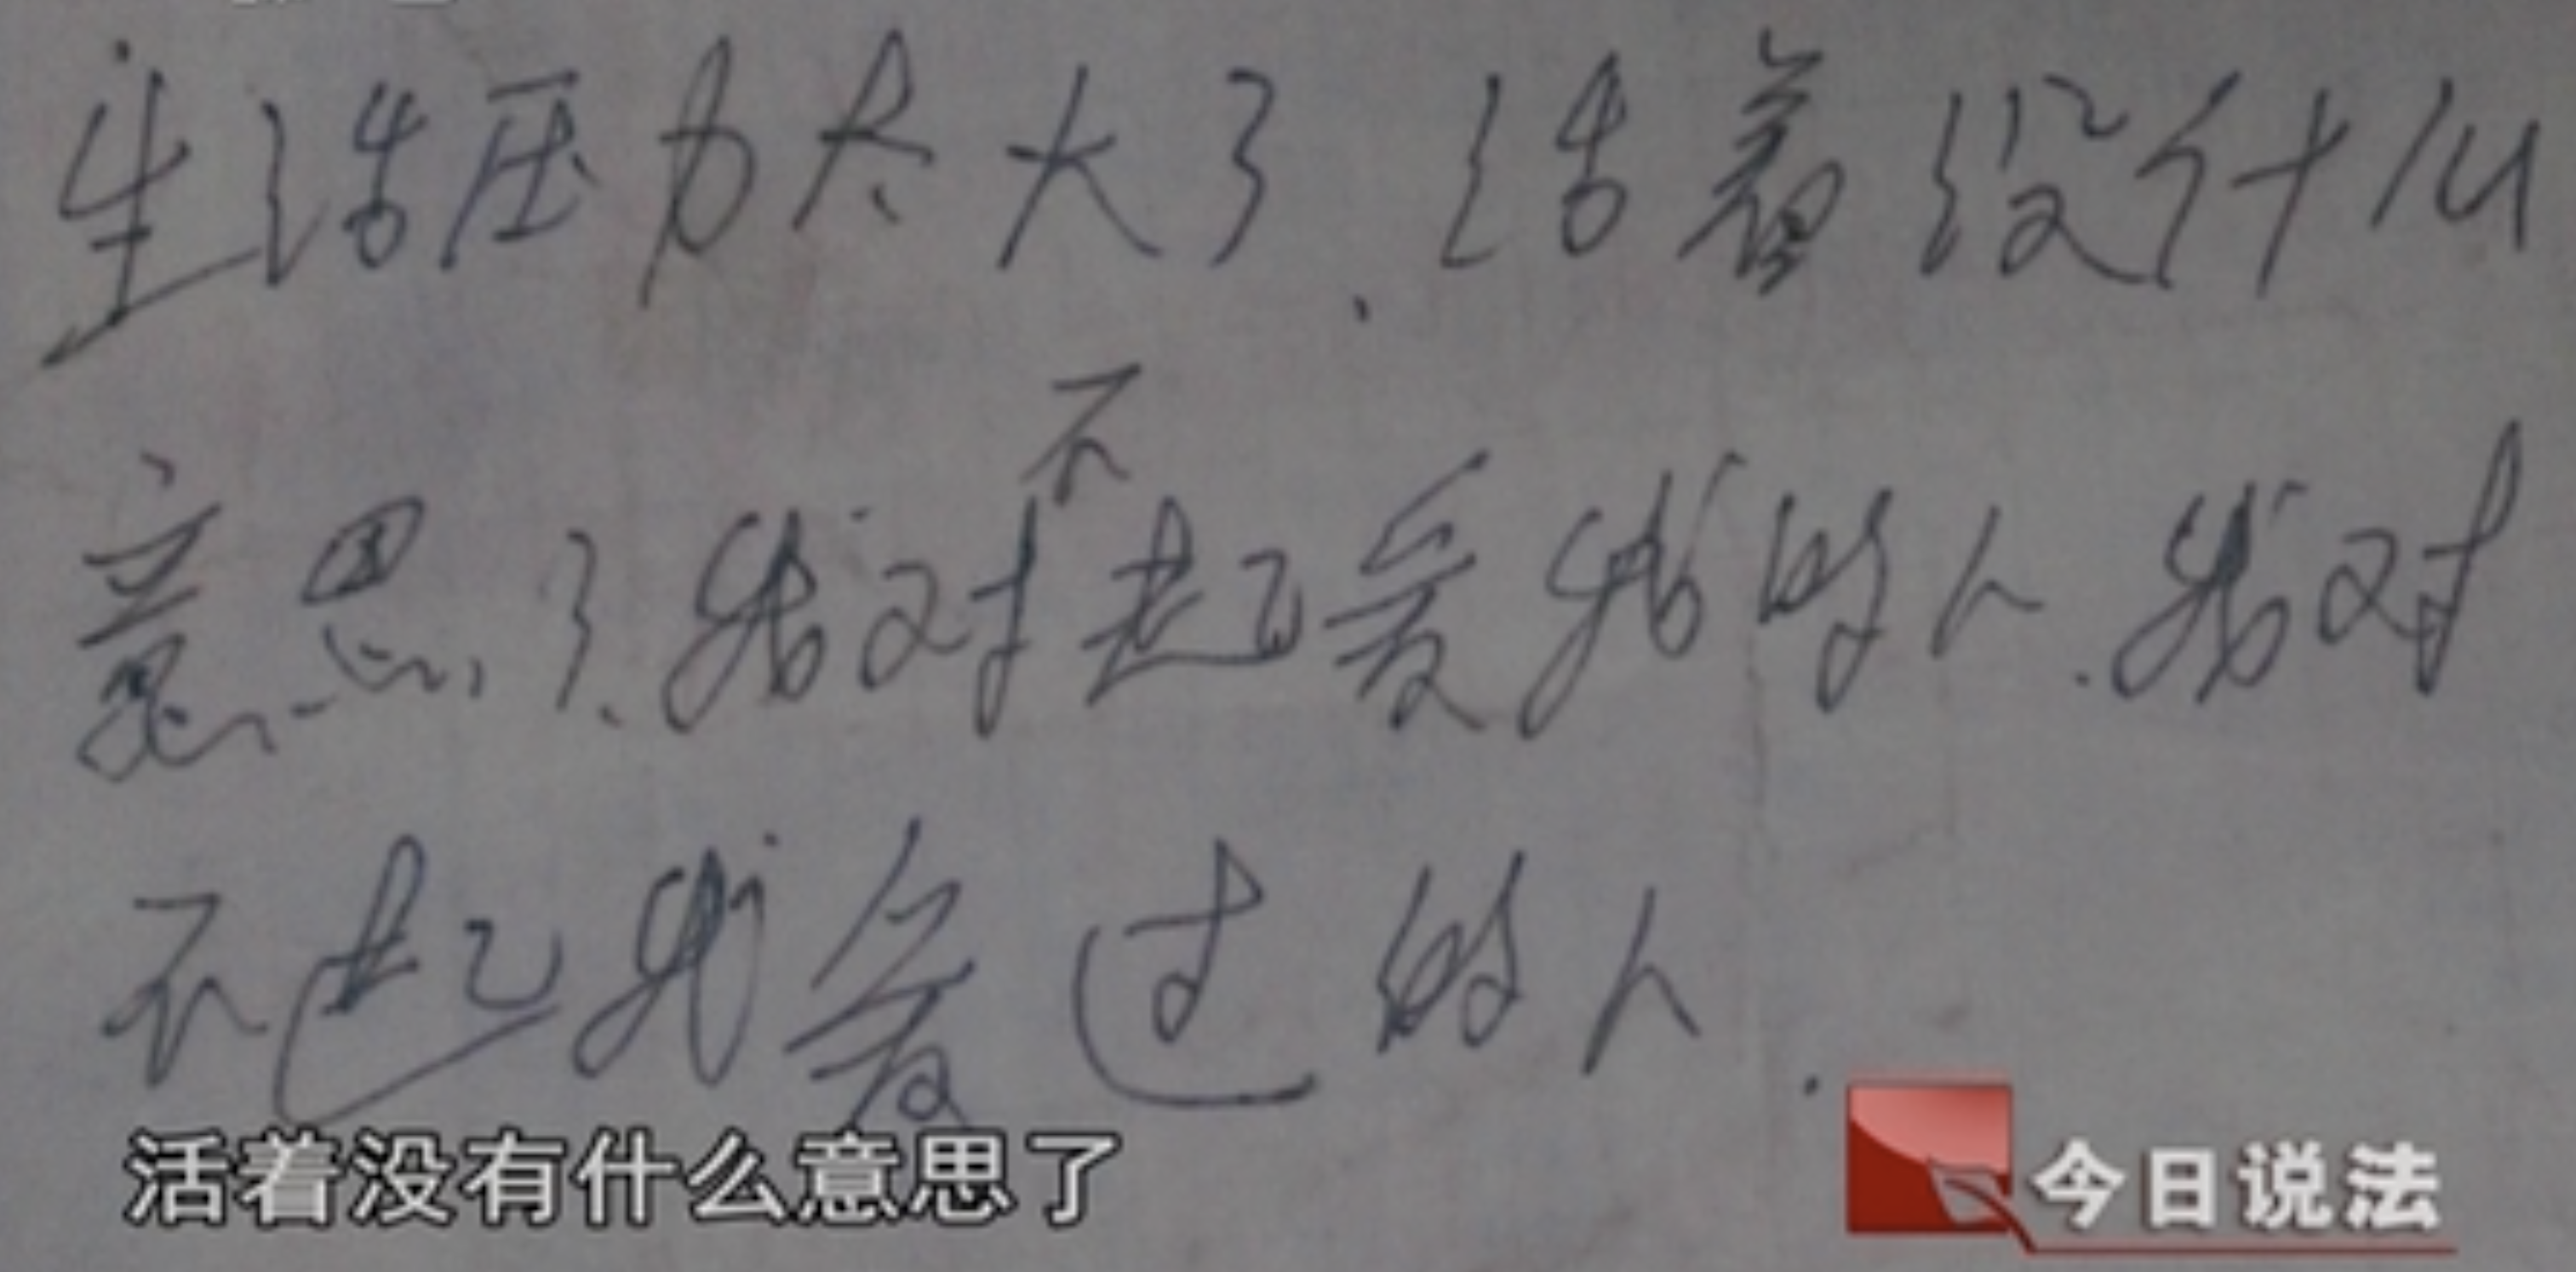 生活压力太大了、活着没什么
意思了、我对不起爱我的人、我对
不起我爱过的人.
活着没有什么意思了
今日说法